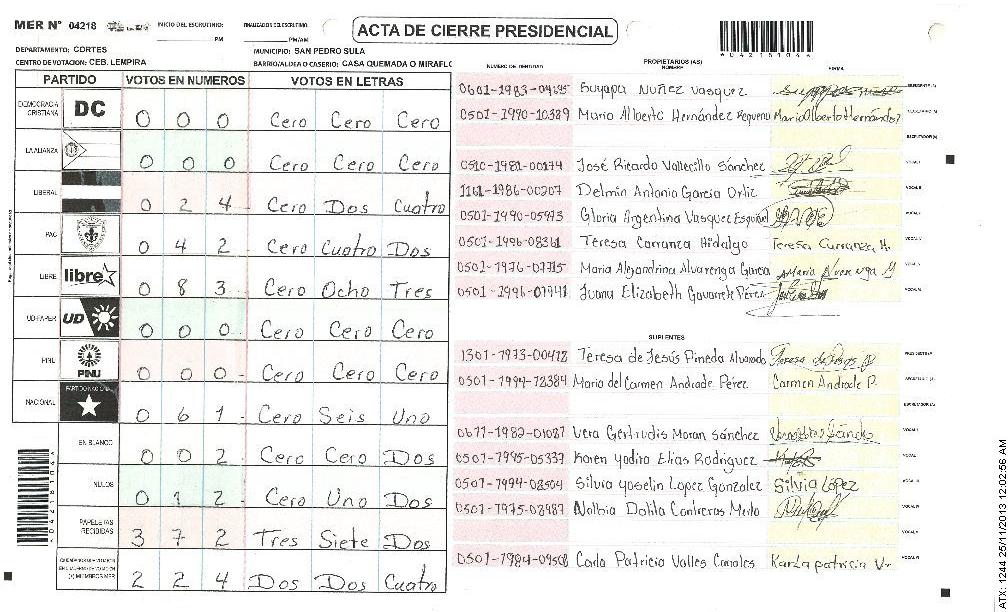 MER Nº 04218
INICIO DEL ESCRUTINIO:
PM
FINALIZACION DEL ESCRUTINIO:
PM/AM
ACTA DE CIERRE PRESIDENCIAL
DEPARTAMENTO: CORTES
MUNICIPIO: SAN PEDRO SULA
CENTRO DE VOTACION: CEB. LEMPIRA
BARRIO/ALDEA O CASERIO: CASA QUEMADA O MIRAFLO
PARTIDO VOTOS EN NUMEROS VOTOS EN LETRAS
DEMOCRACIA CRISTIANA DC 0 0 0 Cero Cero Cero
LA ALIANZA 0 0 0 Cero Cero Cero
LIBERAL 0 2 4 Cero Dos Cuatro
PAC 0 4 2 Cero Cuatro Dos
LIBRE libre 0 8 3 Cero Ocho Tres
UD-FAPER UD 0 0 0 Cero Cero Cero
PINU PINU 0 0 0 Cero Cero Cero
NACIONAL PARTIDO NACIONAL 0 6 1 Cero Seis Uno
EN BLANCO 0 0 2 Cero Cero Dos
NULOS 0 1 2 Cero Uno Dos
PAPELETAS RECIBIDAS 3 7 2 Tres Siete Dos
2 2 4 Dos Dos Cuatro
NUMERO DE IDENTIDAD
PROPIETARIOS (AS)
NOMBRE
FIRMA
Suyapa Nuñez Vasquez
0501-1990-10389 Mario Alberto Hernández Requeno Mario Alberto Hernández
0510-1981-00174 José Ricardo Vallecillo Sánchez
1101-1986-00207 Delmin Antonio García Ortiz
0501-1990-05973 Gloria Argentina Vasquez Esquivel
0501-1996-08361 Teresa Carranza Hidalgo Teresa Carranza H.
0501-1976-07715 Maria Alejandrina Alvarenga Garcia
0501-1996-07941 Juana Elizabeth Gavarrete Pérez
SUPLENTES
1301-1973-00412 Teresa de Jesús Pineda Alvarado
0501-1994-12384 Maria del Carmen Andrade Pérez Carmen Andrade P.
Vera Gertrudis Moran Sánchez
0501-1995-05339 Karen Yadira Elias Rodriguez
0501-1994-08504 Silvia Yoselin Lopez Gonzalez Silvia López
0501-1975-08987
0501-1984-09508 Carla Patricia Valles Canales Karla patricia V.
A04218104A
ATX: 1244 25/11/2013 12:02:56 AM